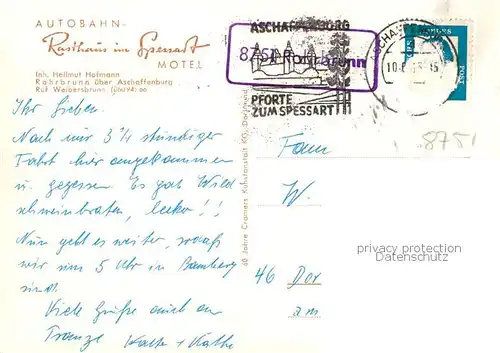 AUTOBAHN-
Rasthaus im Spessart
MOTEL
Inh. Hellmut Hofmann
Rohrbrunn über Aschaffenburg
Ruf Weibersbrunn
ASCHAFFENBURG
8751 Rohrbrunn
PFORTE
ZUM SPESSART
POST
8751
60 Jahre Cramers Kunstanstalt KG, Dortmund
Ihr Lieben.
Nach nur 3 1/4 stündiger
Fahrt hier angekommen
u. gegessen Es gab Wild
schweinbraten, lecker!!
Nun geht es weiter, sodaß
wir um 5 Uhr in Bamberg
sind.
Viele Grüße auch an
Käthe
Fam
W.
46 Dor
am
privacy protection
Datenschutz